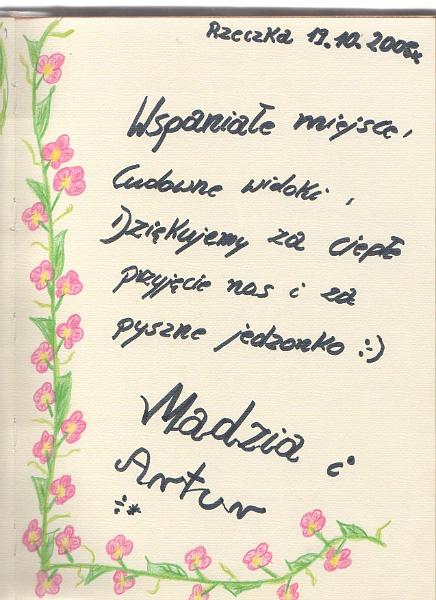 Rzeczka 19.10.2008r
Wspaniałe miejsce,
Cudowne widoki,
Dziękujemy za ciepłe
przyjęcie nas i za
pyszne jedzonko :-)
Madzia i
Artur
:*